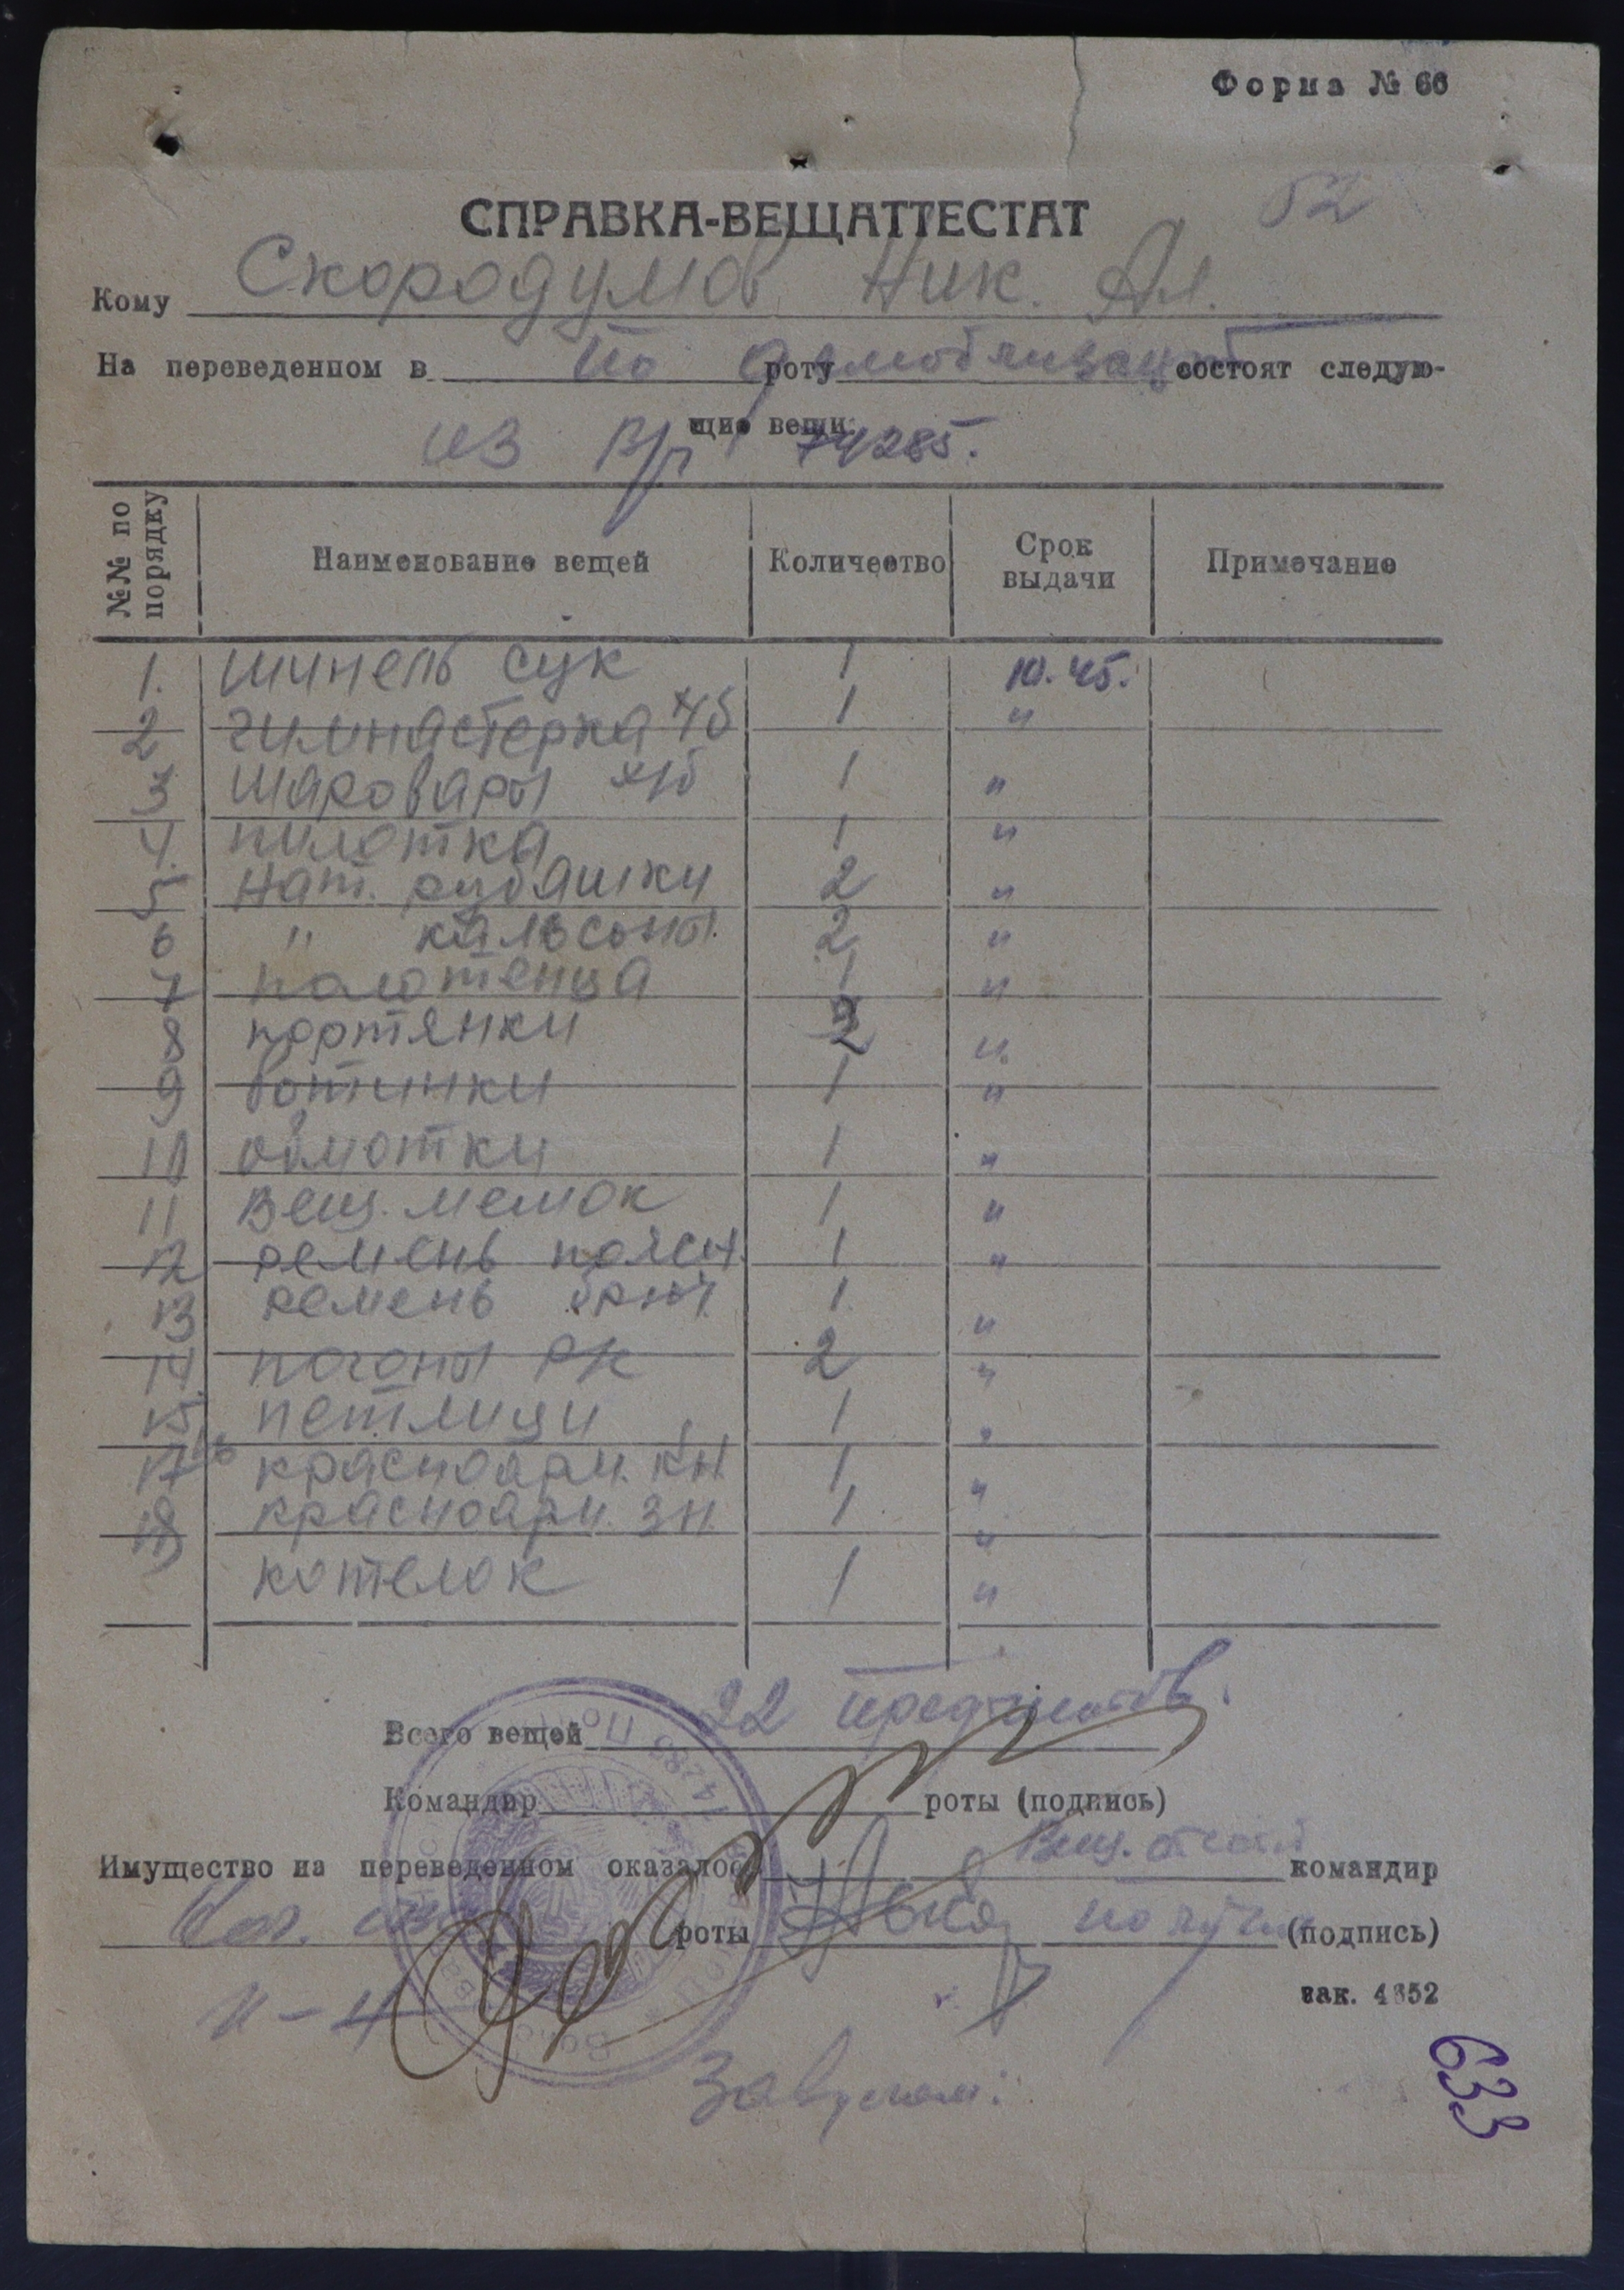 Форма № 66
52
СПРАВКА-ВЕЩАТТЕСТАТ
Кому Скородумов Ник. Ал.
На переведенном в по роту демобилизац состоят следую-
щие вещи:
из в/ч 74285.
№№ по порядку Наименование вещей Количество Срок выдачи Примечание
1. шинель сук 1 10.45.
2 гимнастерка х/б 1 "
3 шаровары х/б 1 "
4. пилотка 1 "
5 нат. рубашки 2 "
6 " кальсоны. 2 "
7 полотенца 1 "
8 портянки 2 "
9 ботинки 1 "
10 обмотки 1 "
11 вещ. мешок 1 "
12 ремень поясн. 1 "
13 ремень брюч. 1 "
14. погоны РК 2 "
15 петлици 1 "
17 16 красноарм. кн. 1 "
18 красноарм. зн. 1 "
котелок 1 "
Всего вещей 22 предметов.
Командир роты (подпись)
Вещ. аттест
Имущество на переведенном оказалось командир
роты получил (подпись)
зак. 4352
633